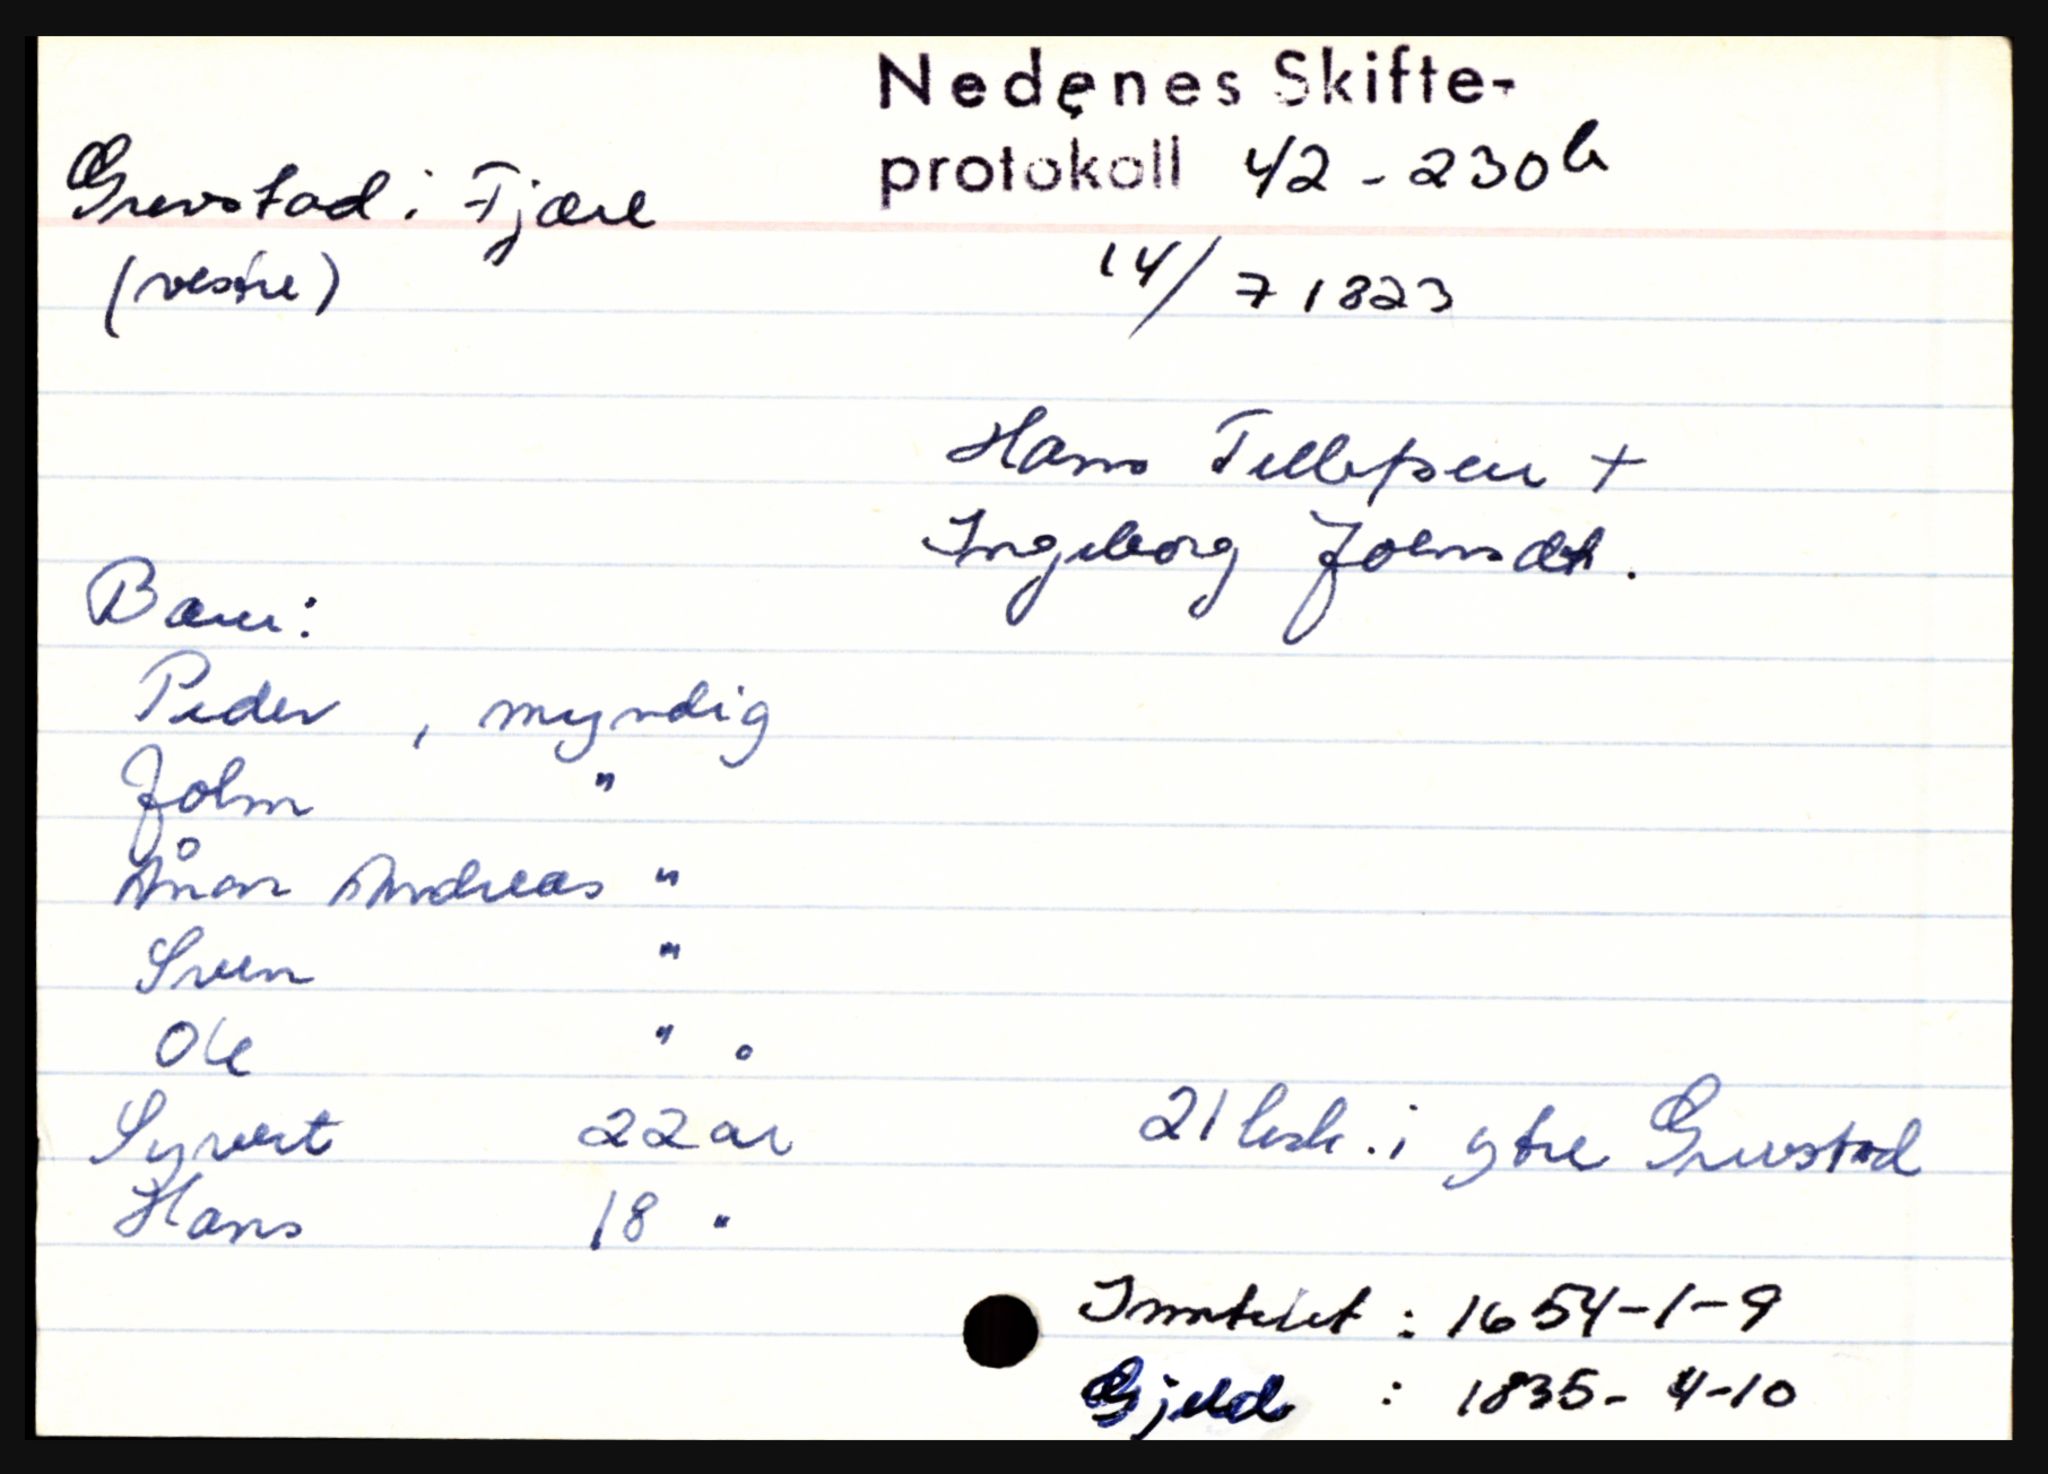 Nedenes Skifte-
protokoll 42 - 230b
Grevstad i Fjære
(vestre)
14/7 1823
Hans Tellefsen +
Ingeborg Johnsdt.
Barn:
Peder , myndig
John "
Ånon Andreas "
Sven "
Ole "
Syvert 22 år
21 besk. i ytre Grevstad
Hans 18 "
Inntekt : 1654-1-9
Gjeld : 1835-4-10